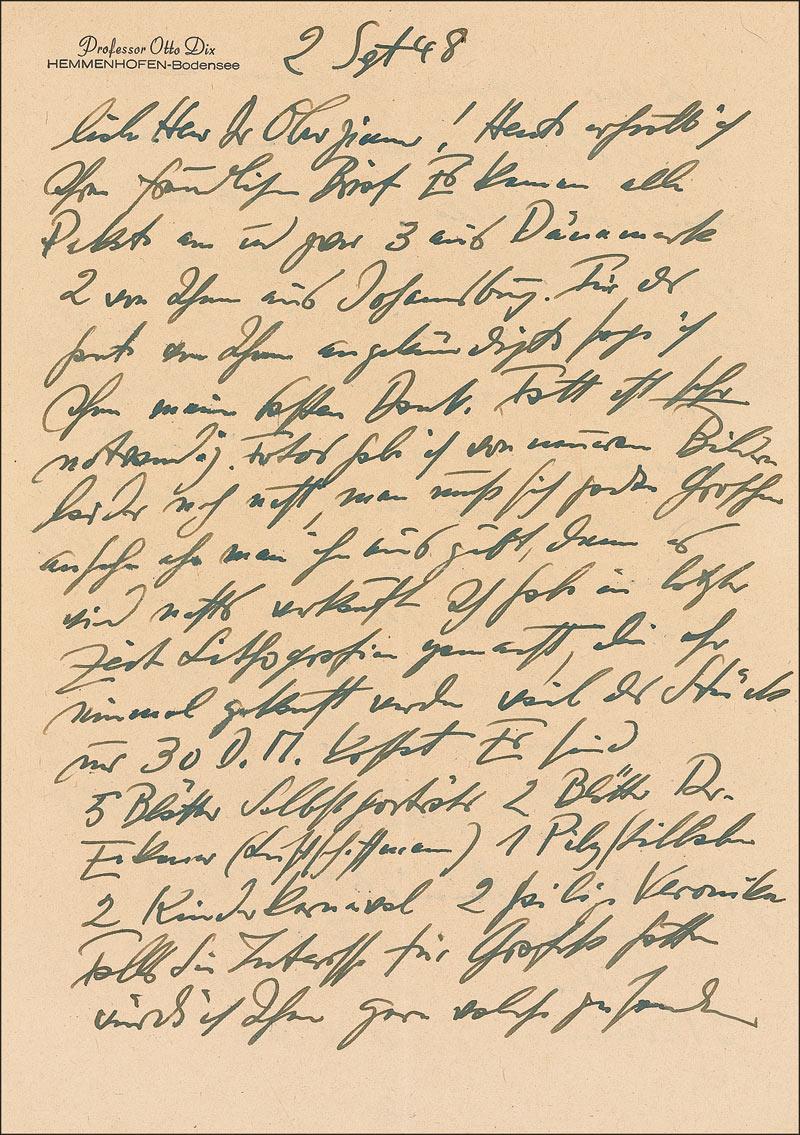 Professor Otto Dix
HEMMENHOFEN-Bodensee
2 Sept 48
Lieber Herr Dr ! Heute erhielt ich
Ihren freundlichen Brief Es kamen alle
Pakete an und zwar 3 aus Dänemark
2 von Ihnen aus Johannesburg. Für das
heute von Ihnen angekündigte sage ich
Ihnen meinen besten Dank. Fett ist sehr
notwendig. Fotos habe ich von neueren Bildern
leider noch nicht, man muß sich jeden Groschen
ansehen ehe man ihn ausgibt, denn es
wird nichts verkauft Ich habe in letzter
Zeit Lithografien gemacht, die eher
einmal gekauft werden weil das Stück
nur 30 D.M. kostet Es sind
5 Blätter Selbstporträts 2 Blätter Dr.
Eckener (Luftschiffmann) 1 Pilzstilleben
2 Kinderkarneval 2 heilige Veronika
Falls Sie Interesse für Grafik hätten
würde ich Ihnen gern welche zusenden